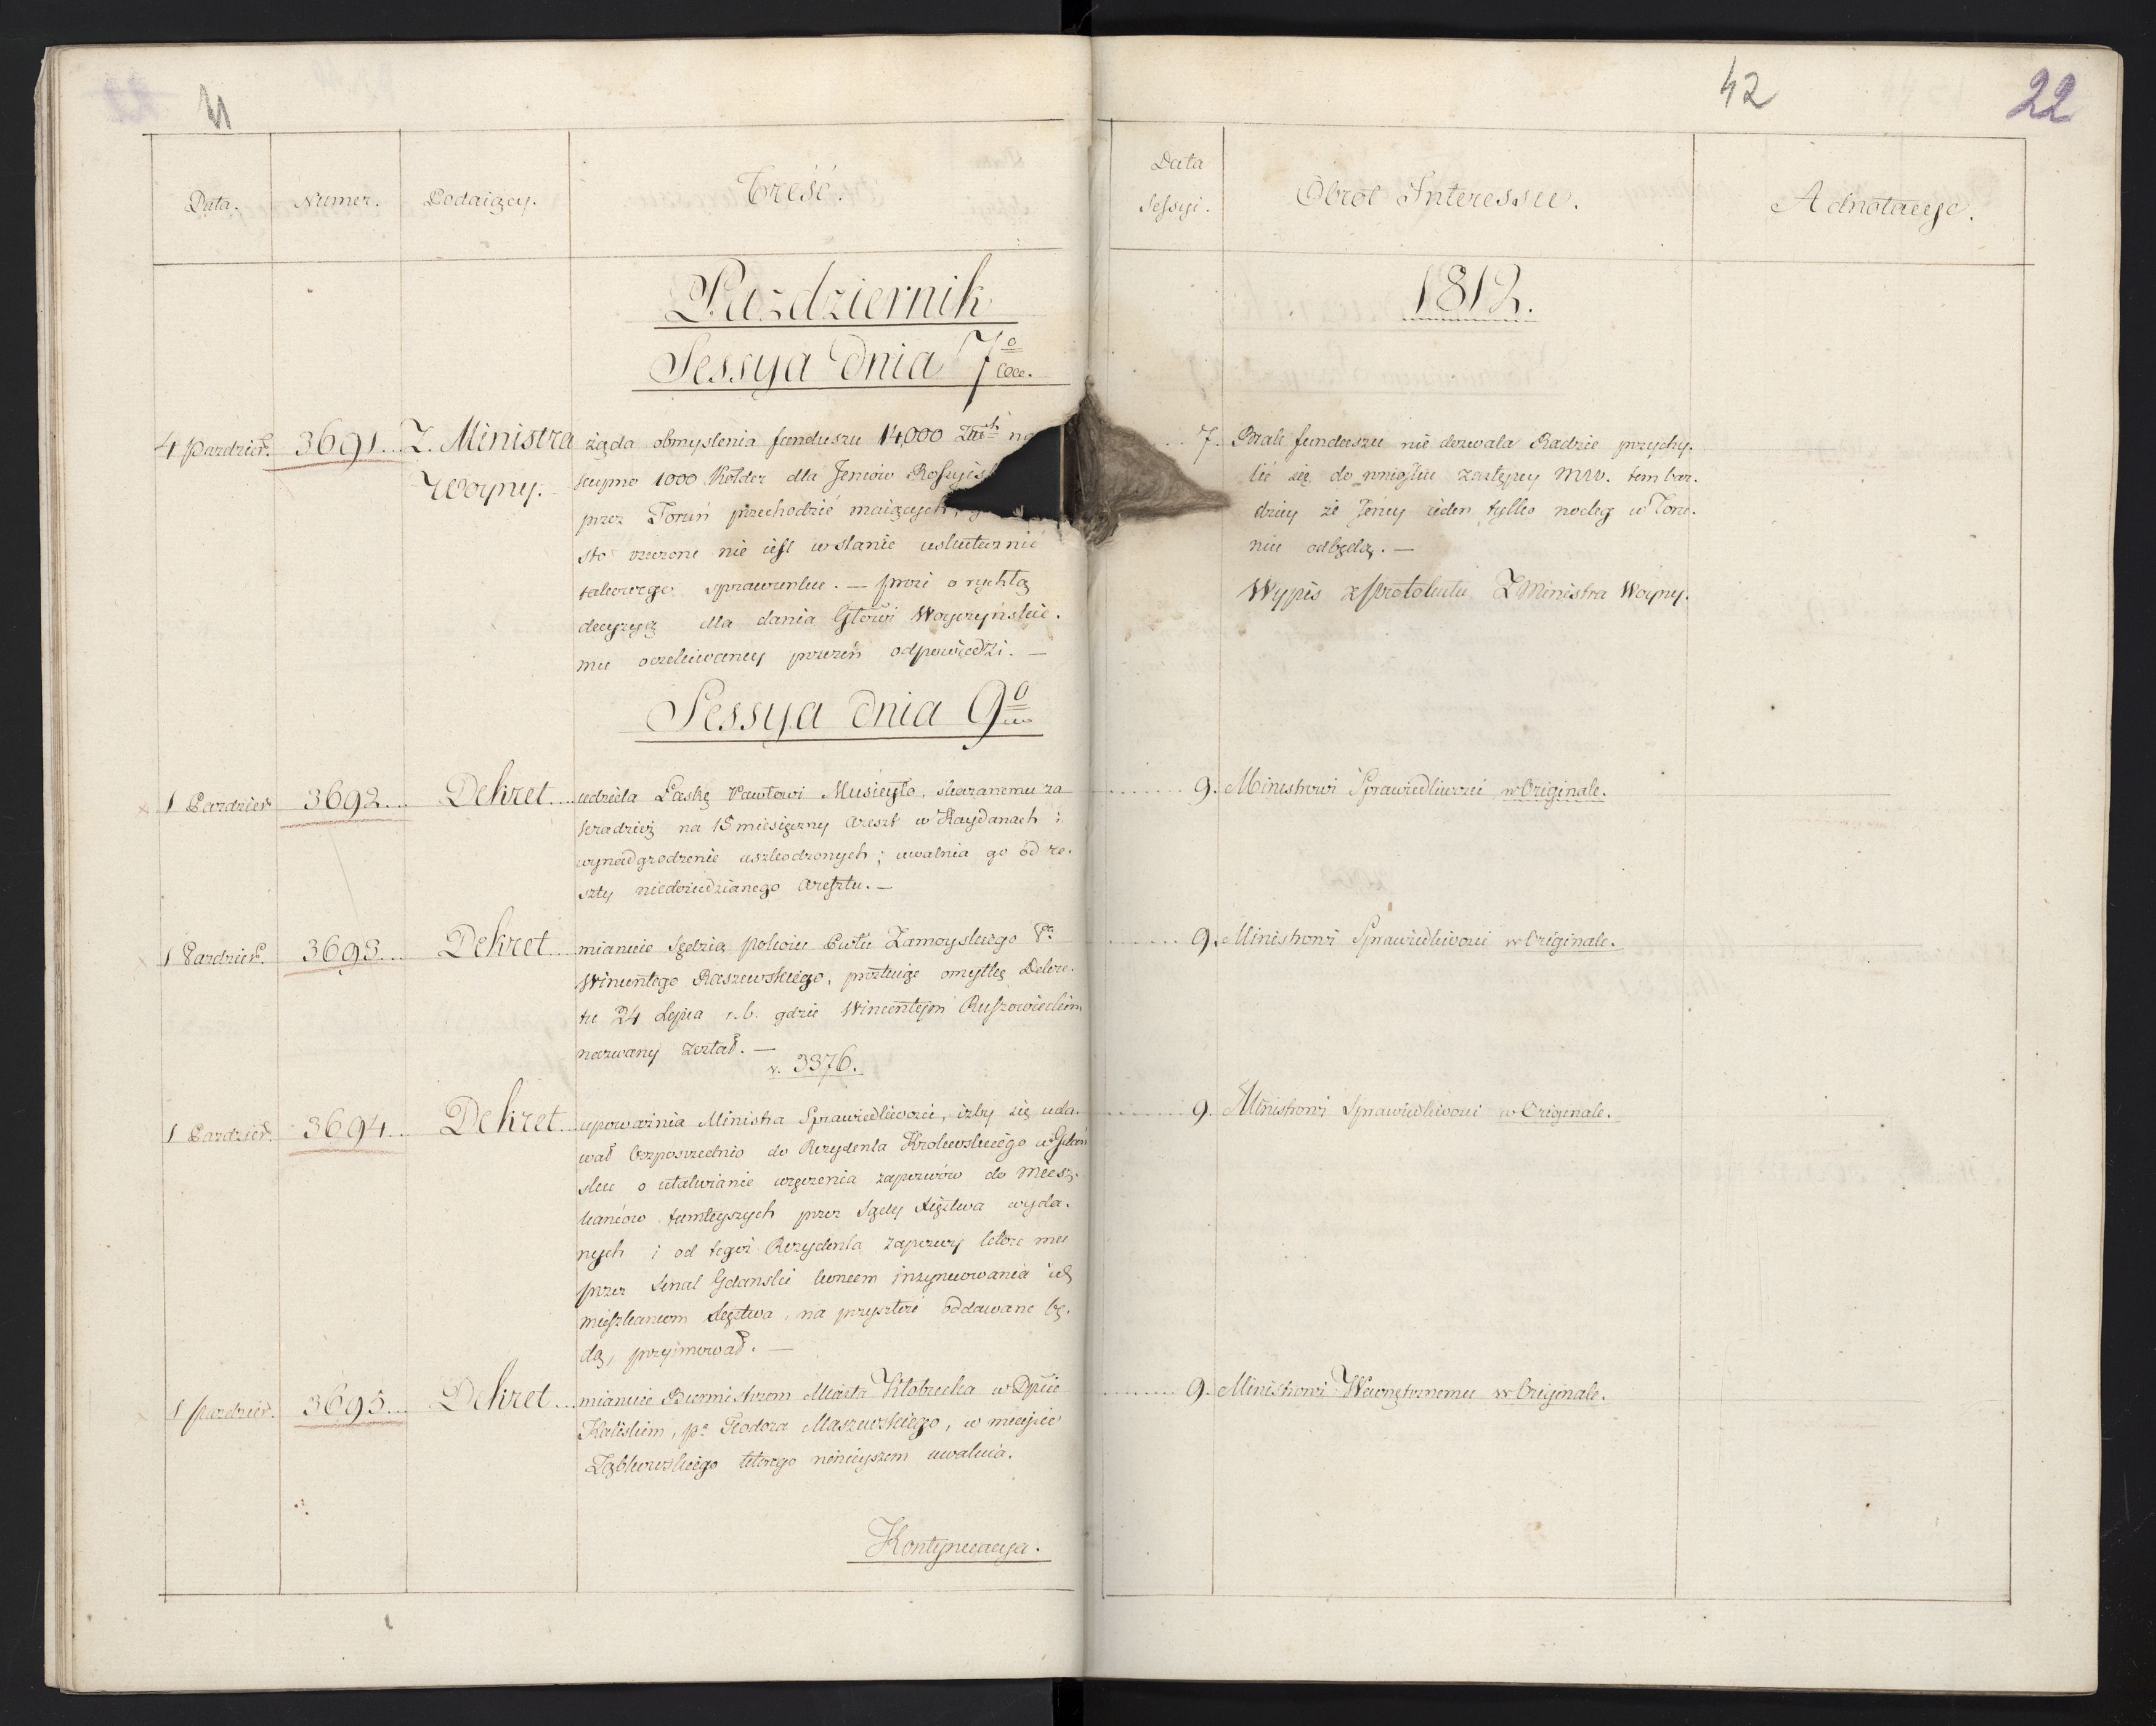 41
42
22
Data.
Numer.
Podaiący.
Treść.
Data
Sessyi.
Obrot Interessu.
Adnotacye.
Pazdziernik
1812.
Sessya dnia 7o
4 Pazdzier. 3691... Z. Ministra
Woyny.
żąda obmyslenia funduszu 14000 Złch na
kupno 1000 Kołder dla Jencow Rossyis
przez Toruń przechodzić maiących, g
sto rzeczone nie iest w stanie uskutecznić
takowego sprawunku. — prosi o rychłą
decyzyą dla dania Głowi Woyczyńskie.
mu oczekiwaney przezeń odpowiedzi. —
7. Brak funduszu nie dozwala Radzie przychy.
lić się do wniosku zastępcy MW. tem bar.
dziey że Jeńcy ieden tylko nocleg w Toru.
niu odbędą. —
Wypis z Protokułu Z Ministra Woyny.
Sessya dnia 9o
1 Pazdzier. 3692... Dekret... udziela Łaskę Pawłowi Musieyło, skazanemu za
kradzież na 15 miesięczny Areszt w Kaydanach i
wynadgrodzenie uszkodzonych; uwalnia go od re.
szty niedosiedzianego Aresztu. —
9. Ministrowi Sprawiedliwosci w Originale.
1 Pazdzier. 3693... Dekret... mianuie Sędzią pokoiu Pwtu Zamoyskiego Pa
Wincentego Raszewskiego, prostuiąc omyłkę Dekre.
tu 24 Lipca r. b. gdzie Wincentym Ruszowieckim
nazwany został. —
v. 3376.
9. Ministrowi Sprawiedliwosci w Originale.
1 Pazdzier. 3694... Dekret... upoważnia Ministra Sprawiedliwosci, izby się uda.
wał bezposrednio do Rezydenta Krolewskiego w Gdań
sku o ułatwianie wręczenia zapozwów do miesz.
kańcow tamteyszych przez Sądy Xięztwa wyda.
nych i od tegoż Rezydenta zapozwy ktore mu
przez Senat Gdanski koncem insynuowania ich
mieszkancom Xięztwa, na przyszłość oddawane bę.
dą, przyimował. —
9. Ministrowi Sprawiedliwosci w Originale.
1 Pazdzier. 3695... Dekret... mianuie Burmistrzem Miasta Kłobucka w Dpcie
Kaliskim, pa Teodora Maszewskiego, w mieysce
Ząbkowskiego ktorego ninieyszem uwalnia.
9. Ministrowi Wewnętrznemu w Originale.
Kontynuacya.